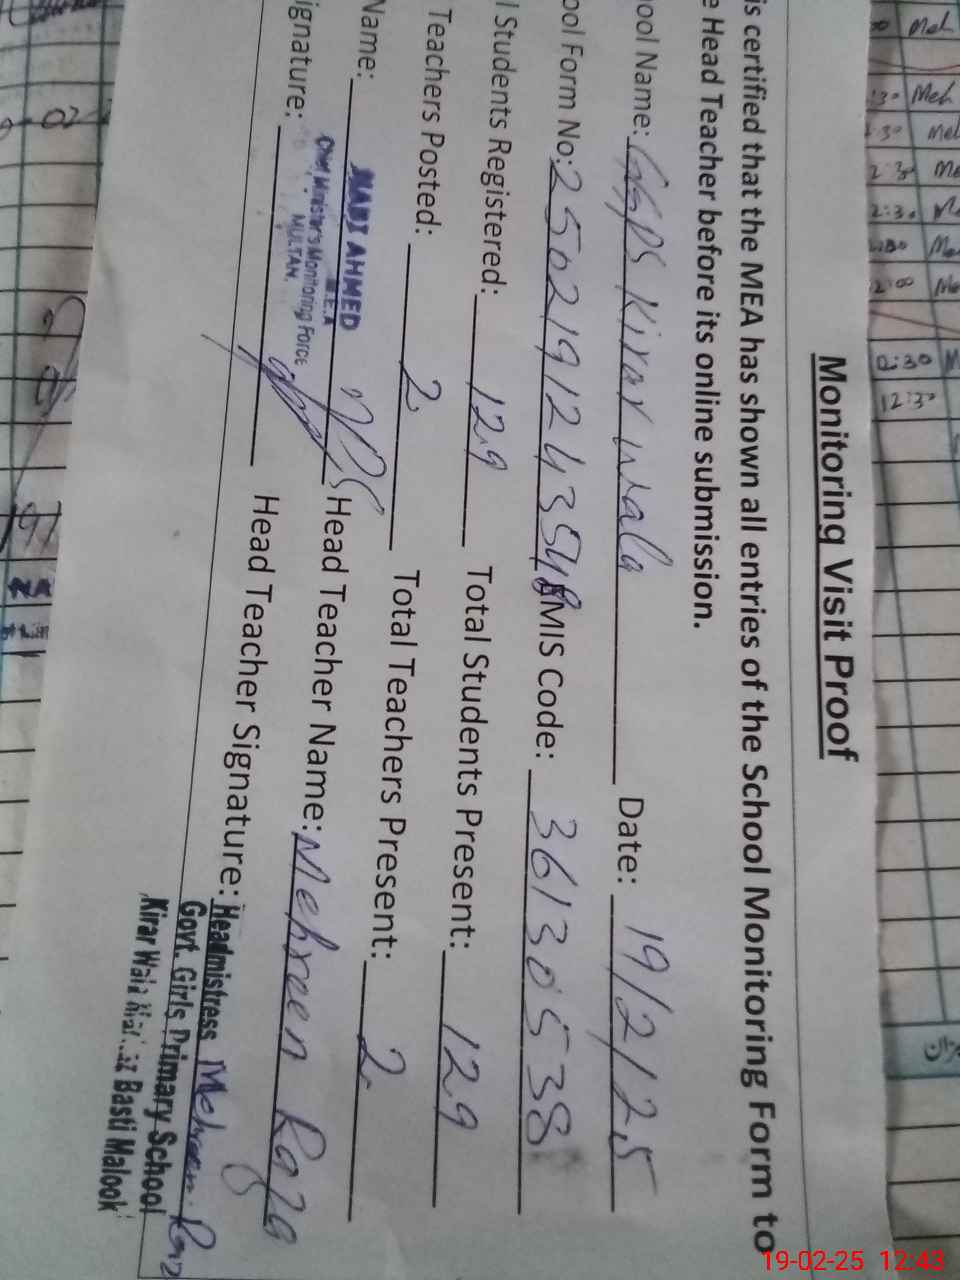 Monitoring Visit Proof
is certified that the MEA has shown all entries of the School Monitoring Form to
e Head Teacher before its online submission.
ool Name: GGPS Kirar Wala Date: 19/2/25
ool Form No: 2502191243548 EMIS Code: 36130538
l Students Registered: 129 Total Students Present: 129
Teachers Posted: 2 Total Teachers Present: 2
Name: NADI AHMED Head Teacher Name: Mehreen Raza
M.E.A
Chief Minister's Monitoring Force
MULTAN.
ignature: Head Teacher Signature: Headmistress Mehreen Raz
Govt. Girls Primary School
Kirar Wala Basti Malook
19-02-25 12:43